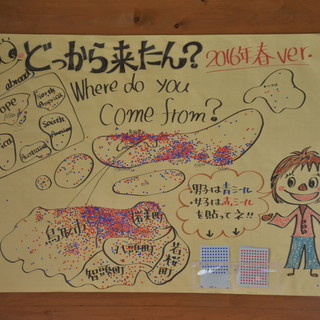 どっから来たん?
2016年春ver.
Where do you
Come from?
abroad
South
America
South
男子は青シール
女子は赤シール
を貼ってネ!!
鳥取市
岩美町
八頭町
若桜町
智頭町